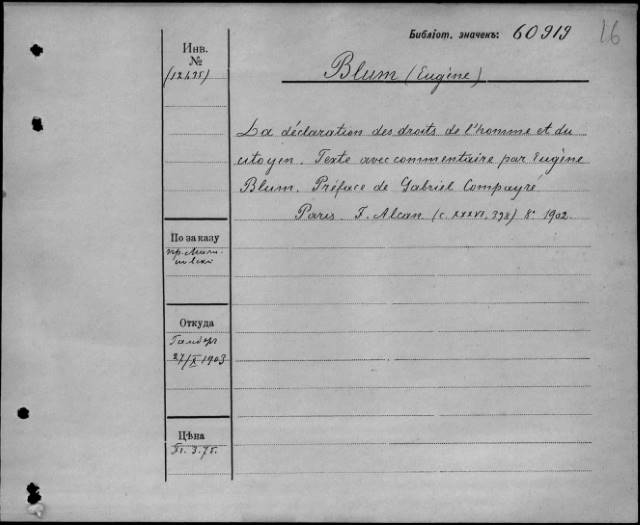 Библiот. значекъ: 60919 16
Инв.
№
(12435)
Blum (Eugène)
La déclaration des droits de l'homme et du
citoyen. Texte avec commentaire par Eugène
Blum. Préface de Gabriel Compayré
Paris. F. Alcan (c. XXXVI, 398) 8° 1902.
По заказу
Откуда
27/X 1903
Цѣна
3.75.